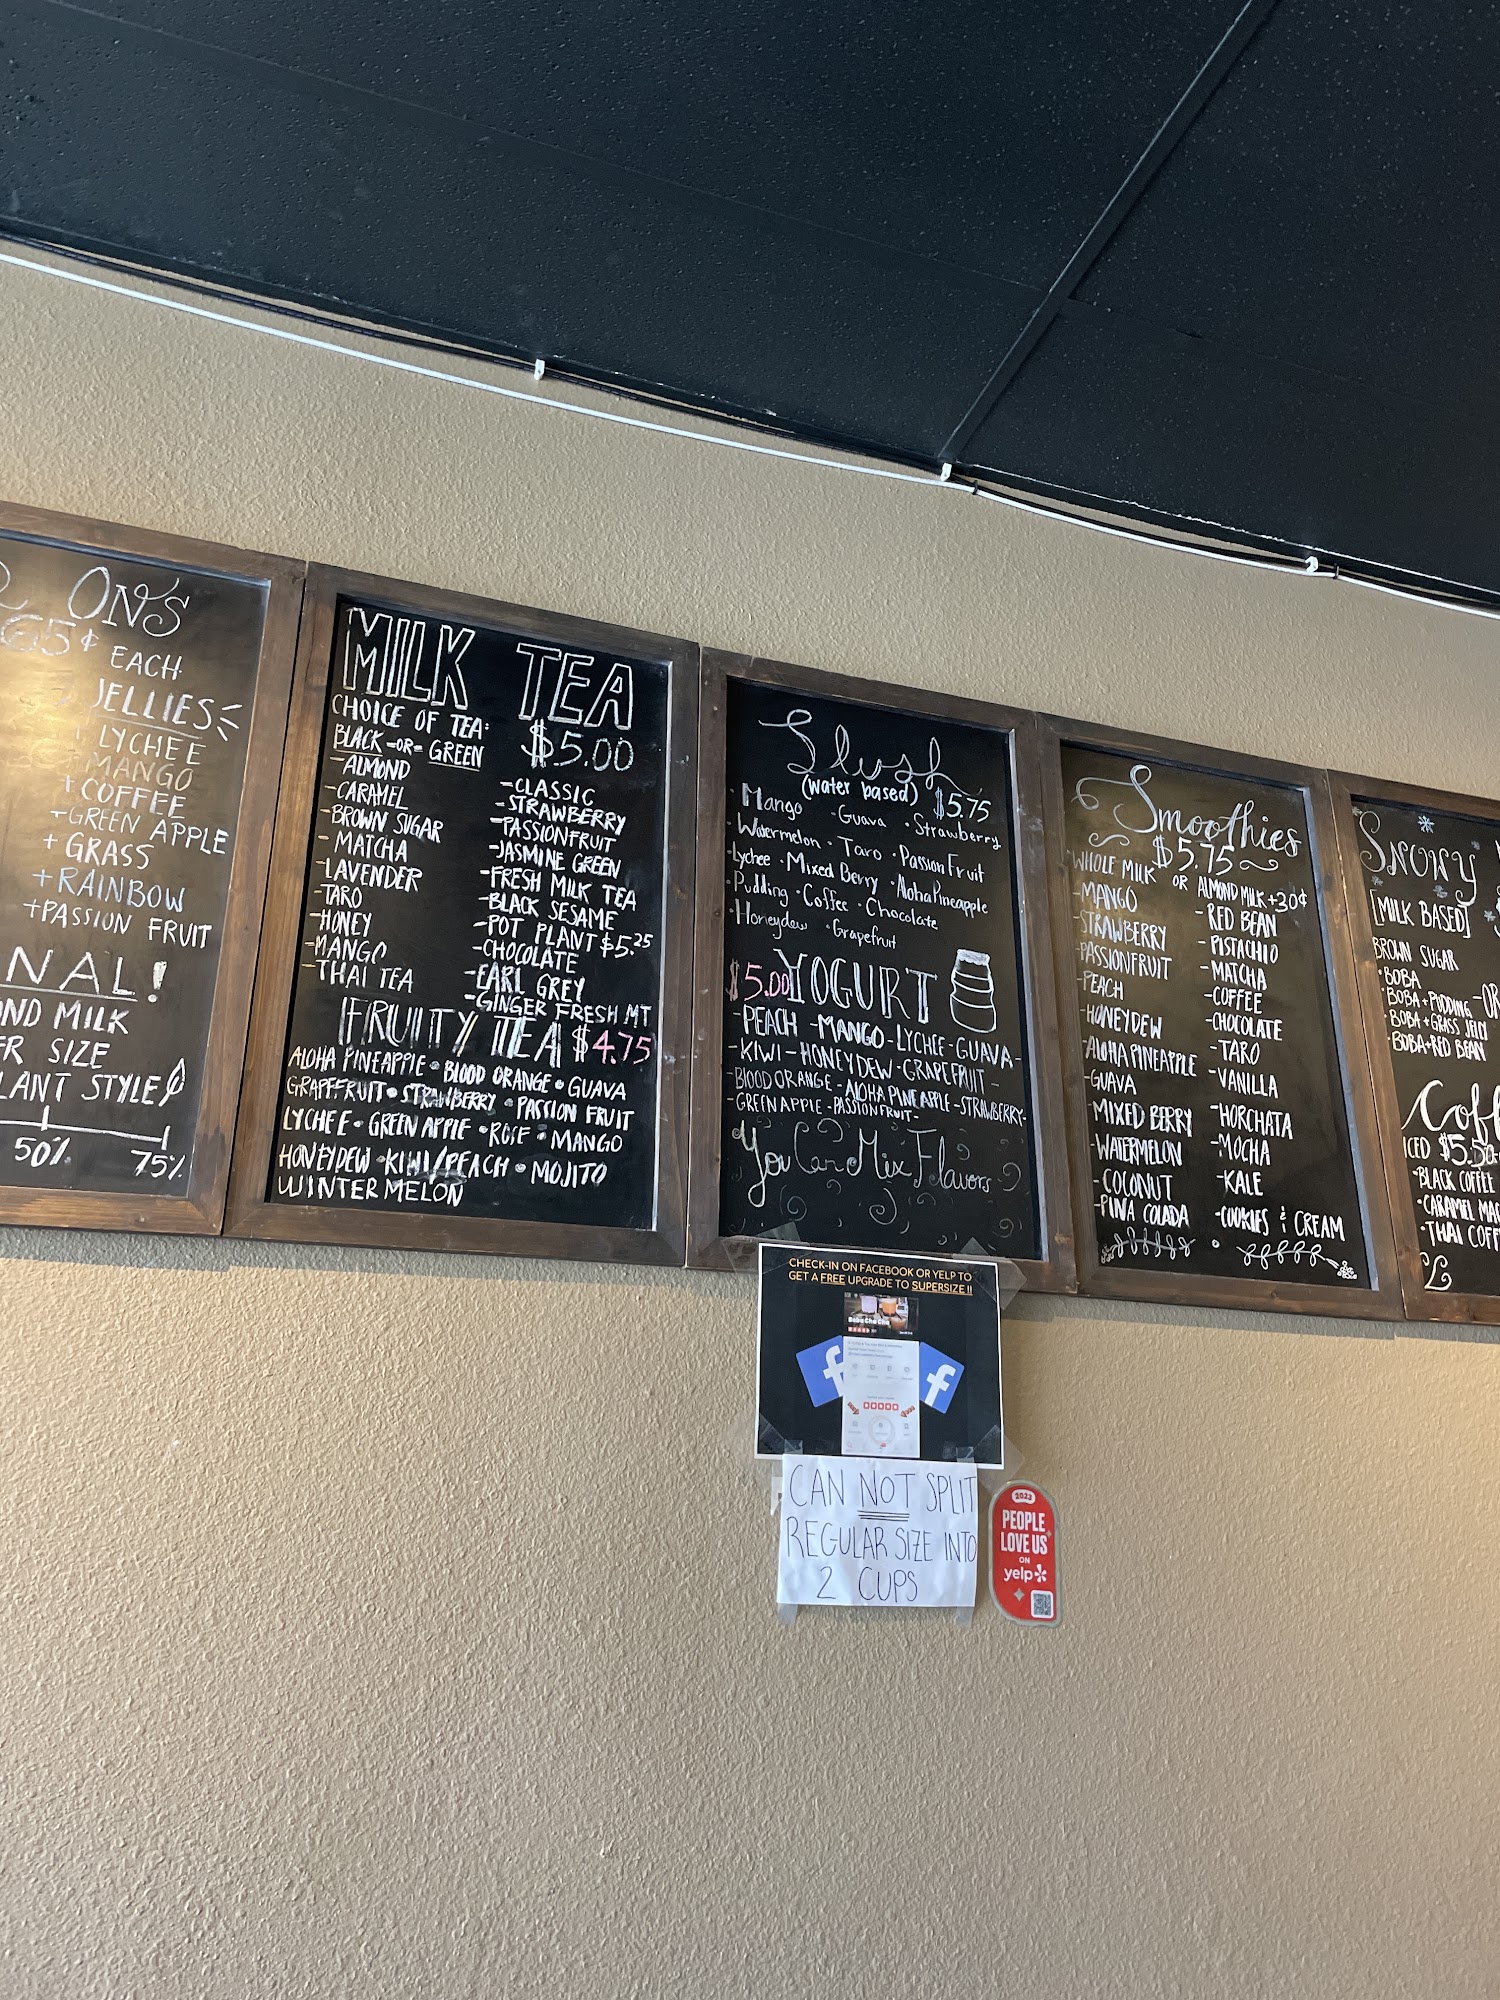 ONS
65¢ EACH
JELLIES
LYCHEE
+MANGO
+COFFEE
+GREEN APPLE
+GRASS
+RAINBOW
+PASSION FRUIT
NAL!
ND MILK
R SIZE
LANT STYLE
50% 75%
MILK TEA
CHOICE OF TEA:
BLACK -OR- GREEN
$5.00
-ALMOND
-CARAMEL
-BROWN SUGAR
-MATCHA
-LAVENDER
-TARO
-HONEY
-MANGO
-THAI TEA
-CLASSIC
-STRAWBERRY
-PASSIONFRUIT
-JASMINE GREEN
-FRESH MILK TEA
-BLACK SESAME
-POT PLANT $5.25
-CHOCOLATE
-EARL GREY
-GINGER FRESH MT
FRUITY TEA $4.75
ALOHA PINEAPPLE • BLOOD ORANGE • GUAVA
GRAPEFRUIT • STRAWBERRY • PASSION FRUIT
LYCHEE • GREEN APPLE • ROSE • MANGO
HONEYDEW • KIWI/PEACH • MOJITO
WINTERMELON
Slush
(water based) $5.75
• Mango • Guava • Strawberry
• Watermelon • Taro • Passion Fruit
• Lychee • Mixed Berry • Aloha Pineapple
• Pudding • Coffee • Chocolate
• Honeydew • Grapefruit
$5.00 YOGURT
-PEACH -MANGO-LYCHEE-GUAVA-
-KIWI-HONEYDEW-GRAPEFRUIT-
-BLOOD ORANGE-ALOHA PINEAPPLE-STRAWBERRY-
-GREEN APPLE-PASSIONFRUIT-
You Can Mix Flavors
Smoothies
$5.75
WHOLE MILK OR ALMOND MILK +30¢
-MANGO
-STRAWBERRY
-PASSIONFRUIT
-PEACH
-HONEYDEW
-ALOHA PINEAPPLE
-GUAVA
-MIXED BERRY
-WATERMELON
-COCONUT
-PINA COLADA
-RED BEAN
-PISTACHIO
-MATCHA
-COFFEE
-CHOCOLATE
-TARO
-VANILLA
-HORCHATA
-MOCHA
-KALE
-COOKIES & CREAM
SNOWY
[MILK BASED]
BROWN SUGAR
•BOBA
•BOBA+PUDDING
•BOBA+GRASS JELLY
•BOBA+RED BEAN
-OR
Coff
ICED $5.50
•BLACK COFFEE
•CARAMEL MA
•THAI COFF
CHECK-IN ON FACEBOOK OR YELP TO
GET A FREE UPGRADE TO SUPERSIZE !!
Boba Cha Cha
CAN NOT SPLIT
REGULAR SIZE INTO
2 CUPS
2023
PEOPLE
LOVE US
ON
yelp